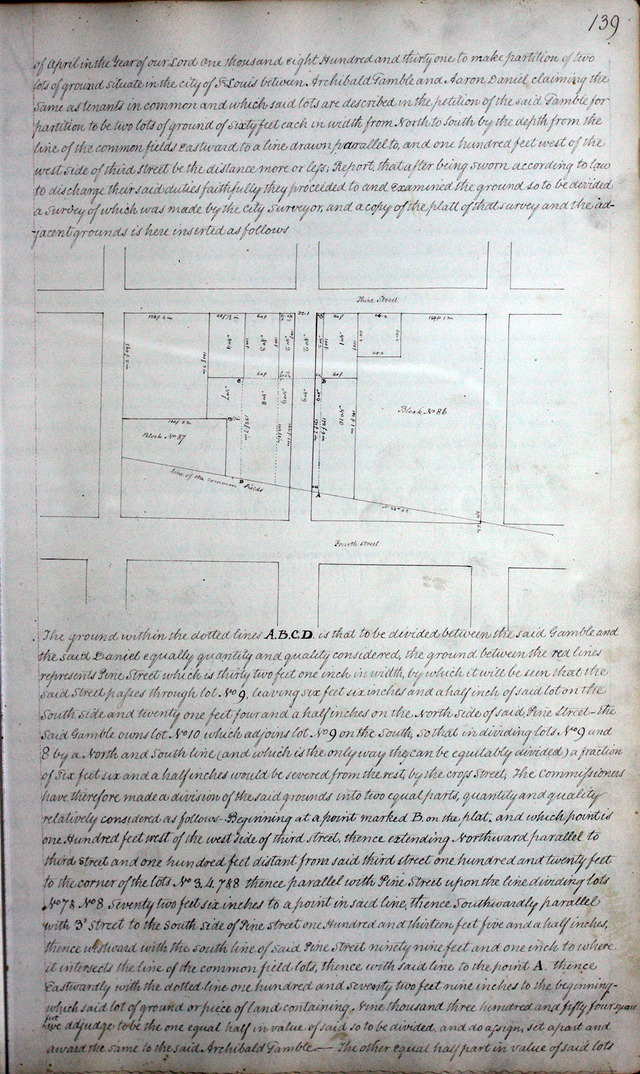 139
of April in the Year of our Lord One thousand eight Hundred and thirty one to make partition of two
lots of ground situate in the city of St Louis between Archibald Gamble and Aaron Daniel claiming the
same as tenants in common and which said lots are described in the petition of the said Gamble for
partition to be two lots of ground of Sixty feet each in width from North to South by the depth from the
line of the common fields Eastward to a line drawn parallel to, and one hundred feet west of the
west side of third Street be the distance more or less; Report, that after being sworn according to law
to discharge their said duties faithfully they proceeded to and examined the ground so to be divided
a Survey of which was made by the City Surveyor, and a copy of the platt of that survey and the ad-
jacent grounds is here inserted as follows
Third Street
Block No 86
Block No 87
Line of the common Fields
Fourth Street
The ground within the dotted lines A.B.C.D. is that to be divided between the said Gamble and
the said Daniel equally quantity and quality considered, the ground between the red lines
represents Pine Street which is thirty two feet one inch in width, by which it will be seen that the
said Street passes through lot No 9, leaving six feet six inches and a half inch of said lot on the
South side and twenty one feet four and a half inches on the North Side of said Pine Street - the
said Gamble owns lot No 10 which adjoins lot No 9 on the South, so that in dividing lots No 9 and
8 by a North and South line (and which is the only way they can be equitably divided) a fraction
of Six feet six and a half inches would be severed from the rest, by the cross Street, The Commissioners
have therefore made a division of the said grounds into two equal parts, quantity and quality
relatively considered as follows - Beginning at a point marked B. on the plat, and which point is
one Hundred feet west of the west side of third street, thence extending Northward parallel to
third Street and one hundred feet distant from said third street one hundred and twenty feet
to the corner of the lots No 3, 4, 7 & 8 thence parallel with Pine Street upon the line dividing lots
No 7 & No 8 Seventy two feet six inches to a point in said line, thence Southwardly parallel
with 3d Street to the South side of Pine street One Hundred and thirteen feet five and a half inches,
thence westward with the south line of said Pine Street ninety nine feet and one inch to where
it intersects the line of the common field lots, thence with said line to the point A. thence
Eastwardly with the dotted line one hundred and seventy two feet nine inches to the beginning -
which said lot of ground or piece of land containing Nine thousand three hundred and fifty four square
feet we adjudge to be the one equal half in value of said so to be divided, and do assign, set apart and
award the same to the said Archibald Gamble — The other equal half part in value of said lots